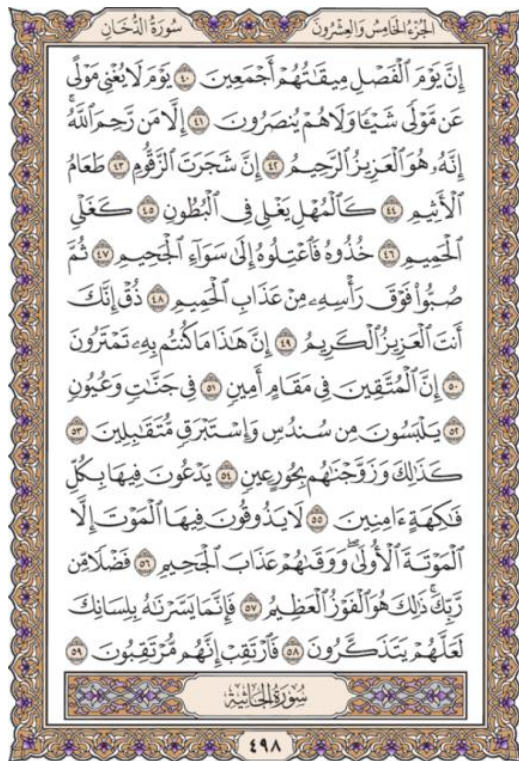 سُورَةُ الدُّخَانِ
الجُزْءُ الخَامِسُ وَالعِشْرُونَ
إِنَّ يَوْمَ ٱلْفَصْلِ مِيقَٰتُهُمْ أَجْمَعِينَ ٤٠ يَوْمَ لَا يُغْنِي مَوْلًى
عَن مَّوْلًى شَيْـًٔا وَلَا هُمْ يُنصَرُونَ ٤١ إِلَّا مَن رَّحِمَ ٱللَّهُۚ
إِنَّهُۥ هُوَ ٱلْعَزِيزُ ٱلرَّحِيمُ ٤٢ إِنَّ شَجَرَتَ ٱلزَّقُّومِ ٤٣ طَعَامُ
ٱلْأَثِيمِ ٤٤ كَٱلْمُهْلِ يَغْلِي فِي ٱلْبُطُونِ ٤٥ كَغَلْيِ
ٱلْحَمِيمِ ٤٦ خُذُوهُ فَٱعْتِلُوهُ إِلَىٰ سَوَآءِ ٱلْجَحِيمِ ٤٧ ثُمَّ
صُبُّوا۟ فَوْقَ رَأْسِهِۦ مِنْ عَذَابِ ٱلْحَمِيمِ ٤٨ ذُقْ إِنَّكَ
أَنتَ ٱلْعَزِيزُ ٱلْكَرِيمُ ٤٩ إِنَّ هَٰذَا مَا كُنتُم بِهِۦ تَمْتَرُونَ
٥٠ إِنَّ ٱلْمُتَّقِينَ فِي مَقَامٍ أَمِينٍ ٥١ فِي جَنَّٰتٍ وَعُيُونٍ
٥٢ يَلْبَسُونَ مِن سُندُسٍ وَإِسْتَبْرَقٍ مُّتَقَٰبِلِينَ ٥٣
كَذَٰلِكَ وَزَوَّجْنَٰهُم بِحُورٍ عِينٍ ٥٤ يَدْعُونَ فِيهَا بِكُلِّ
فَٰكِهَةٍ ءَامِنِينَ ٥٥ لَا يَذُوقُونَ فِيهَا ٱلْمَوْتَ إِلَّا
ٱلْمَوْتَةَ ٱلْأُولَىٰۖ وَوَقَىٰهُمْ عَذَابَ ٱلْجَحِيمِ ٥٦ فَضْلًا مِّن
رَّبِّكَۚ ذَٰلِكَ هُوَ ٱلْفَوْزُ ٱلْعَظِيمُ ٥٧ فَإِنَّمَا يَسَّرْنَٰهُ بِلِسَانِكَ
لَعَلَّهُمْ يَتَذَكَّرُونَ ٥٨ فَٱرْتَقِبْ إِنَّهُم مُّرْتَقِبُونَ ٥٩
سُورَةُ الجَاثِيَةِ
٤٩٨